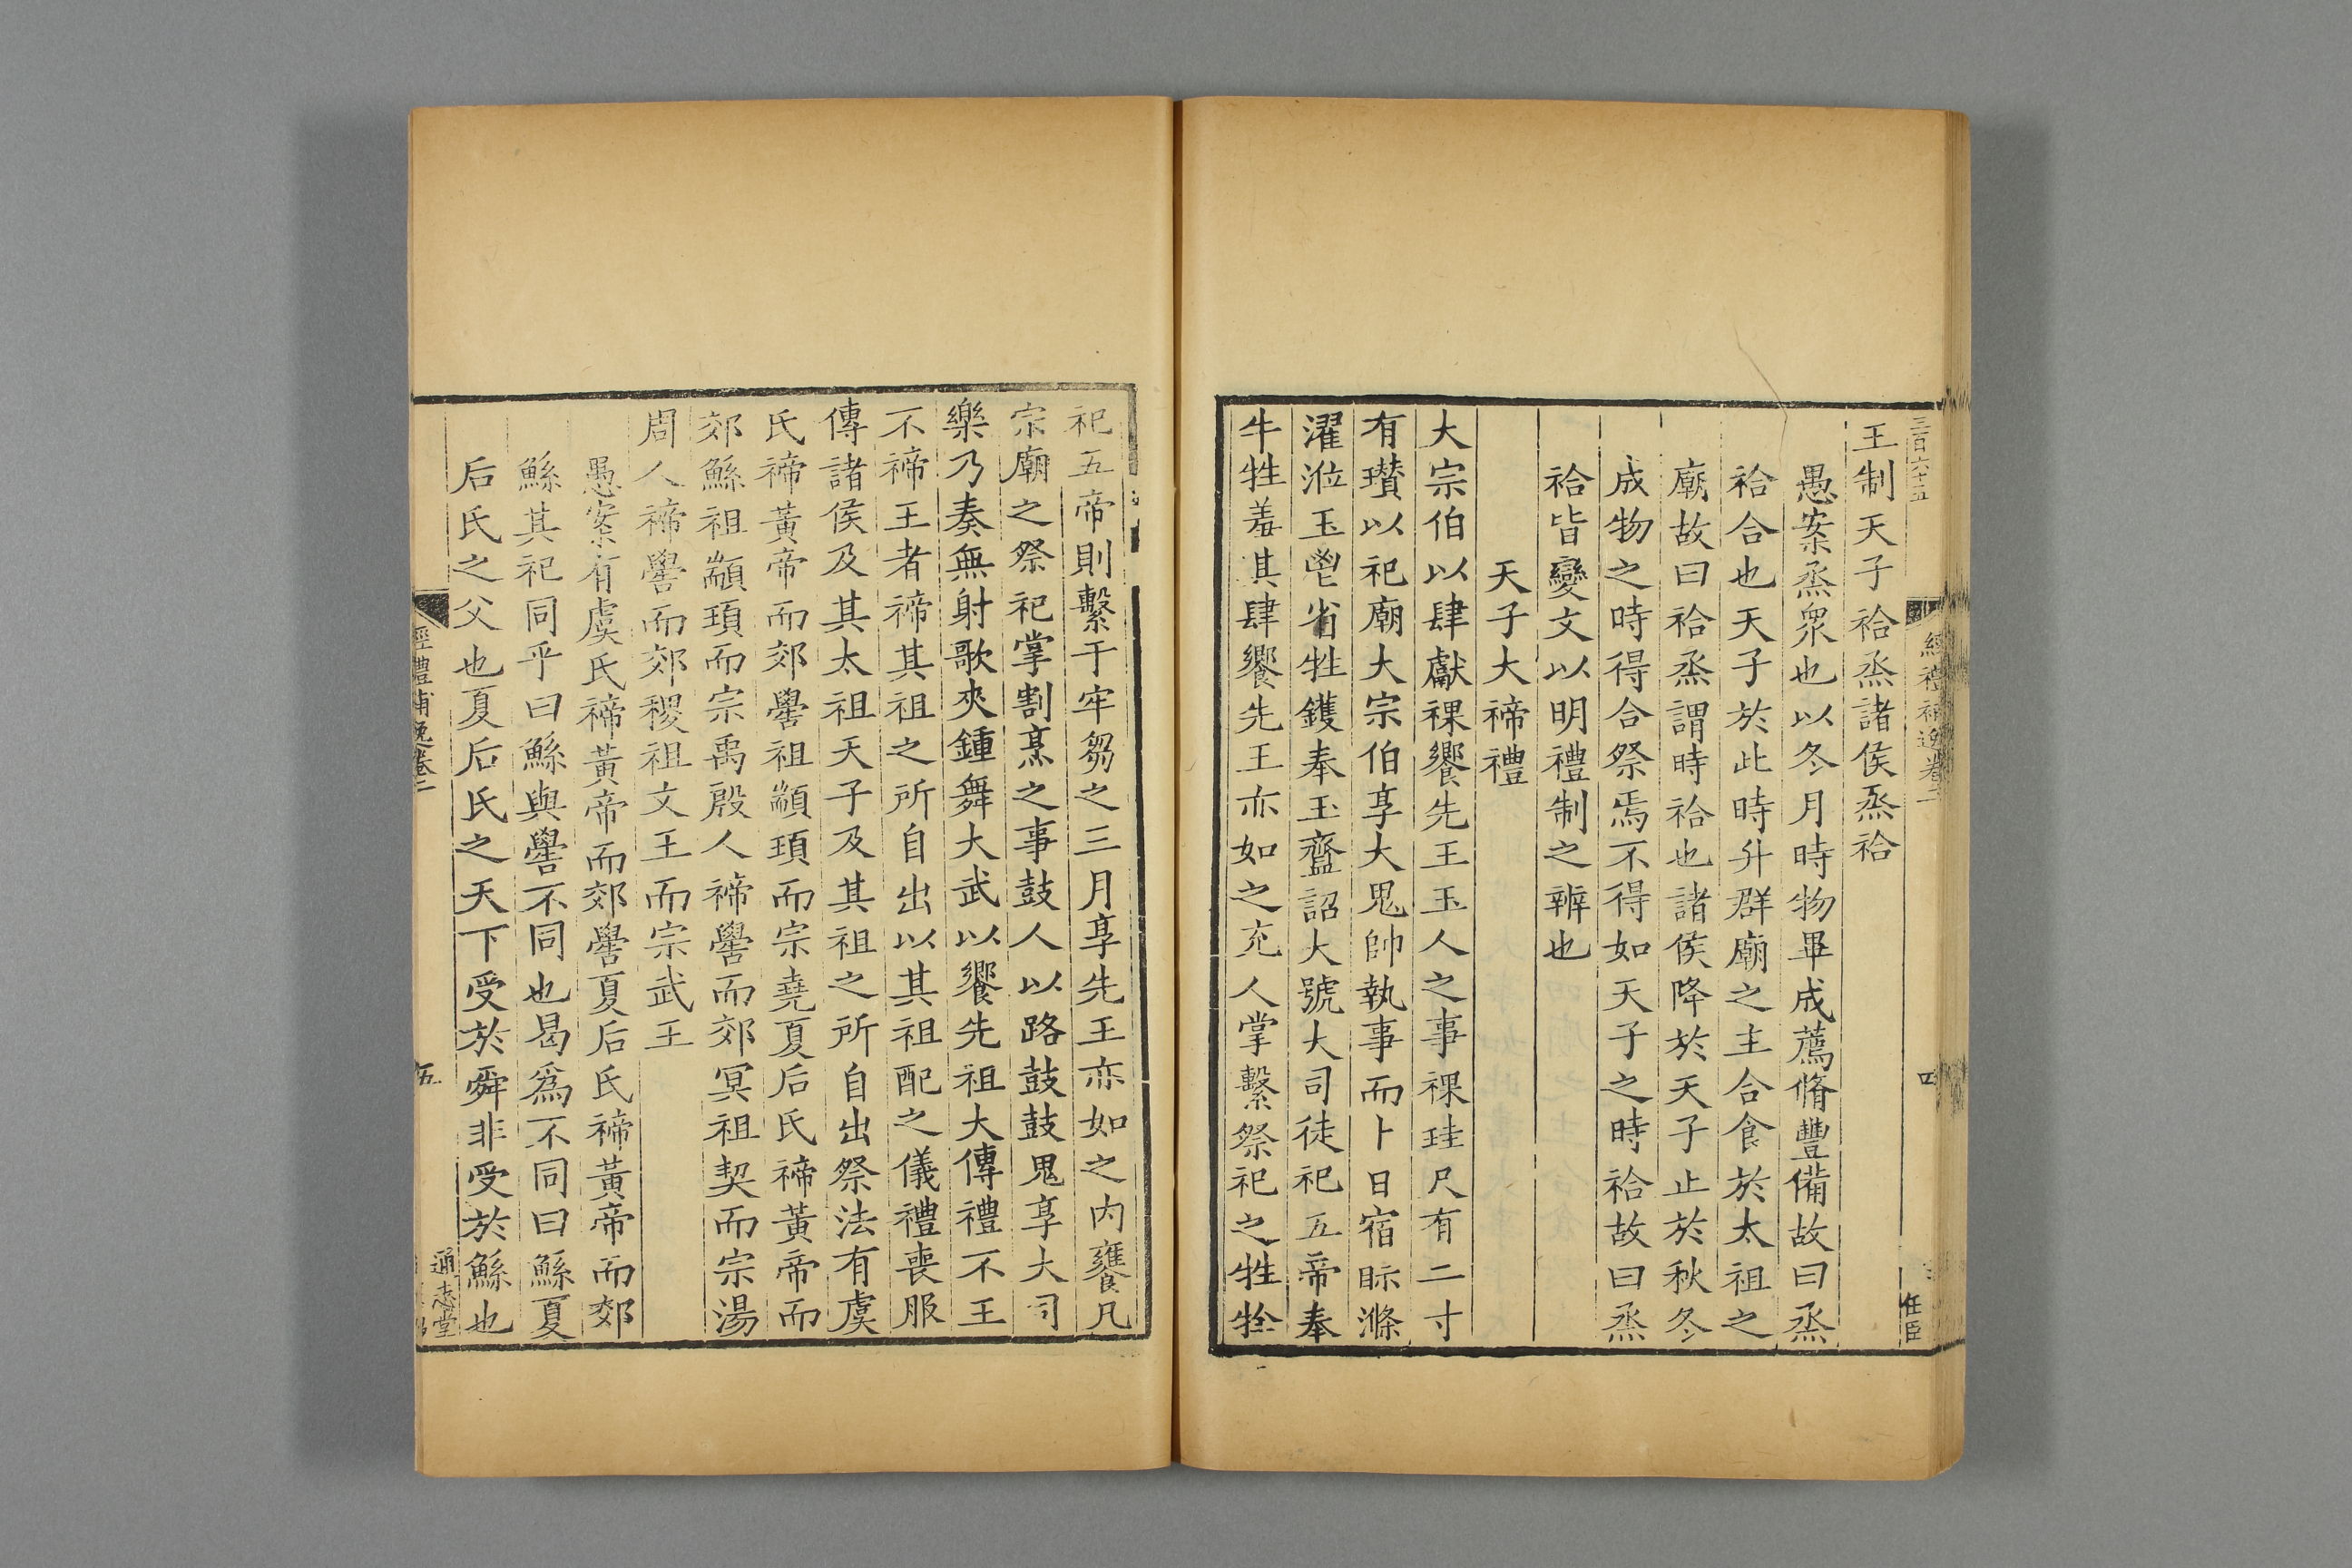 三百六十五
經禮補逸卷二
四
任臣
王制天子祫烝諸侯烝祫
愚案烝衆也以冬月時物畢成薦脩豐備故曰烝
祫合也天子於此時升群廟之主合食於太祖之
廟故曰祫烝謂時祫也諸侯降於天子止於秋冬
成物之時得合祭焉不得如天子之時祫故曰烝
祫皆變文以明禮制之辨也
天子大禘禮
大宗伯以肆獻祼饗先王玉人之事祼珪尺有二寸
有瓚以祀廟大宗伯享大鬼帥執事而卜日宿眎滌
濯涖玉鬯省牲鑊奉玉齍詔大號大司徒祀五帝奉
牛牲羞其肆饗先王亦如之充人掌繫祭祀之牲牷
祀五帝則繫于牢芻之三月享先王亦如之内饔凡
宗廟之祭祀掌割烹之事鼓人以路鼓鼓鬼享大司
樂乃奏無射歌夾鍾舞大武以饗先祖大傳禮不王
不禘王者禘其祖之所自出以其祖配之儀禮喪服
傳諸侯及其太祖天子及其祖之所自出祭法有虞
氏禘黃帝而郊嚳祖顓頊而宗堯夏后氏禘黃帝而
郊鯀祖顓頊而宗禹殷人禘嚳而郊冥祖契而宗湯
周人禘嚳而郊稷祖文王而宗武王
愚案有虞氏禘黃帝而郊嚳夏后氏禘黃帝而郊
鯀其祀同乎曰鯀與嚳不同也曷爲不同曰鯀夏
后氏之父也夏后氏之天下受於舜非受於鯀也
經禮補逸卷二
五
通志堂